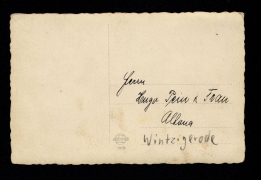 Herrn
Hugo Pein u. Frau
Altona
Wintzigerode